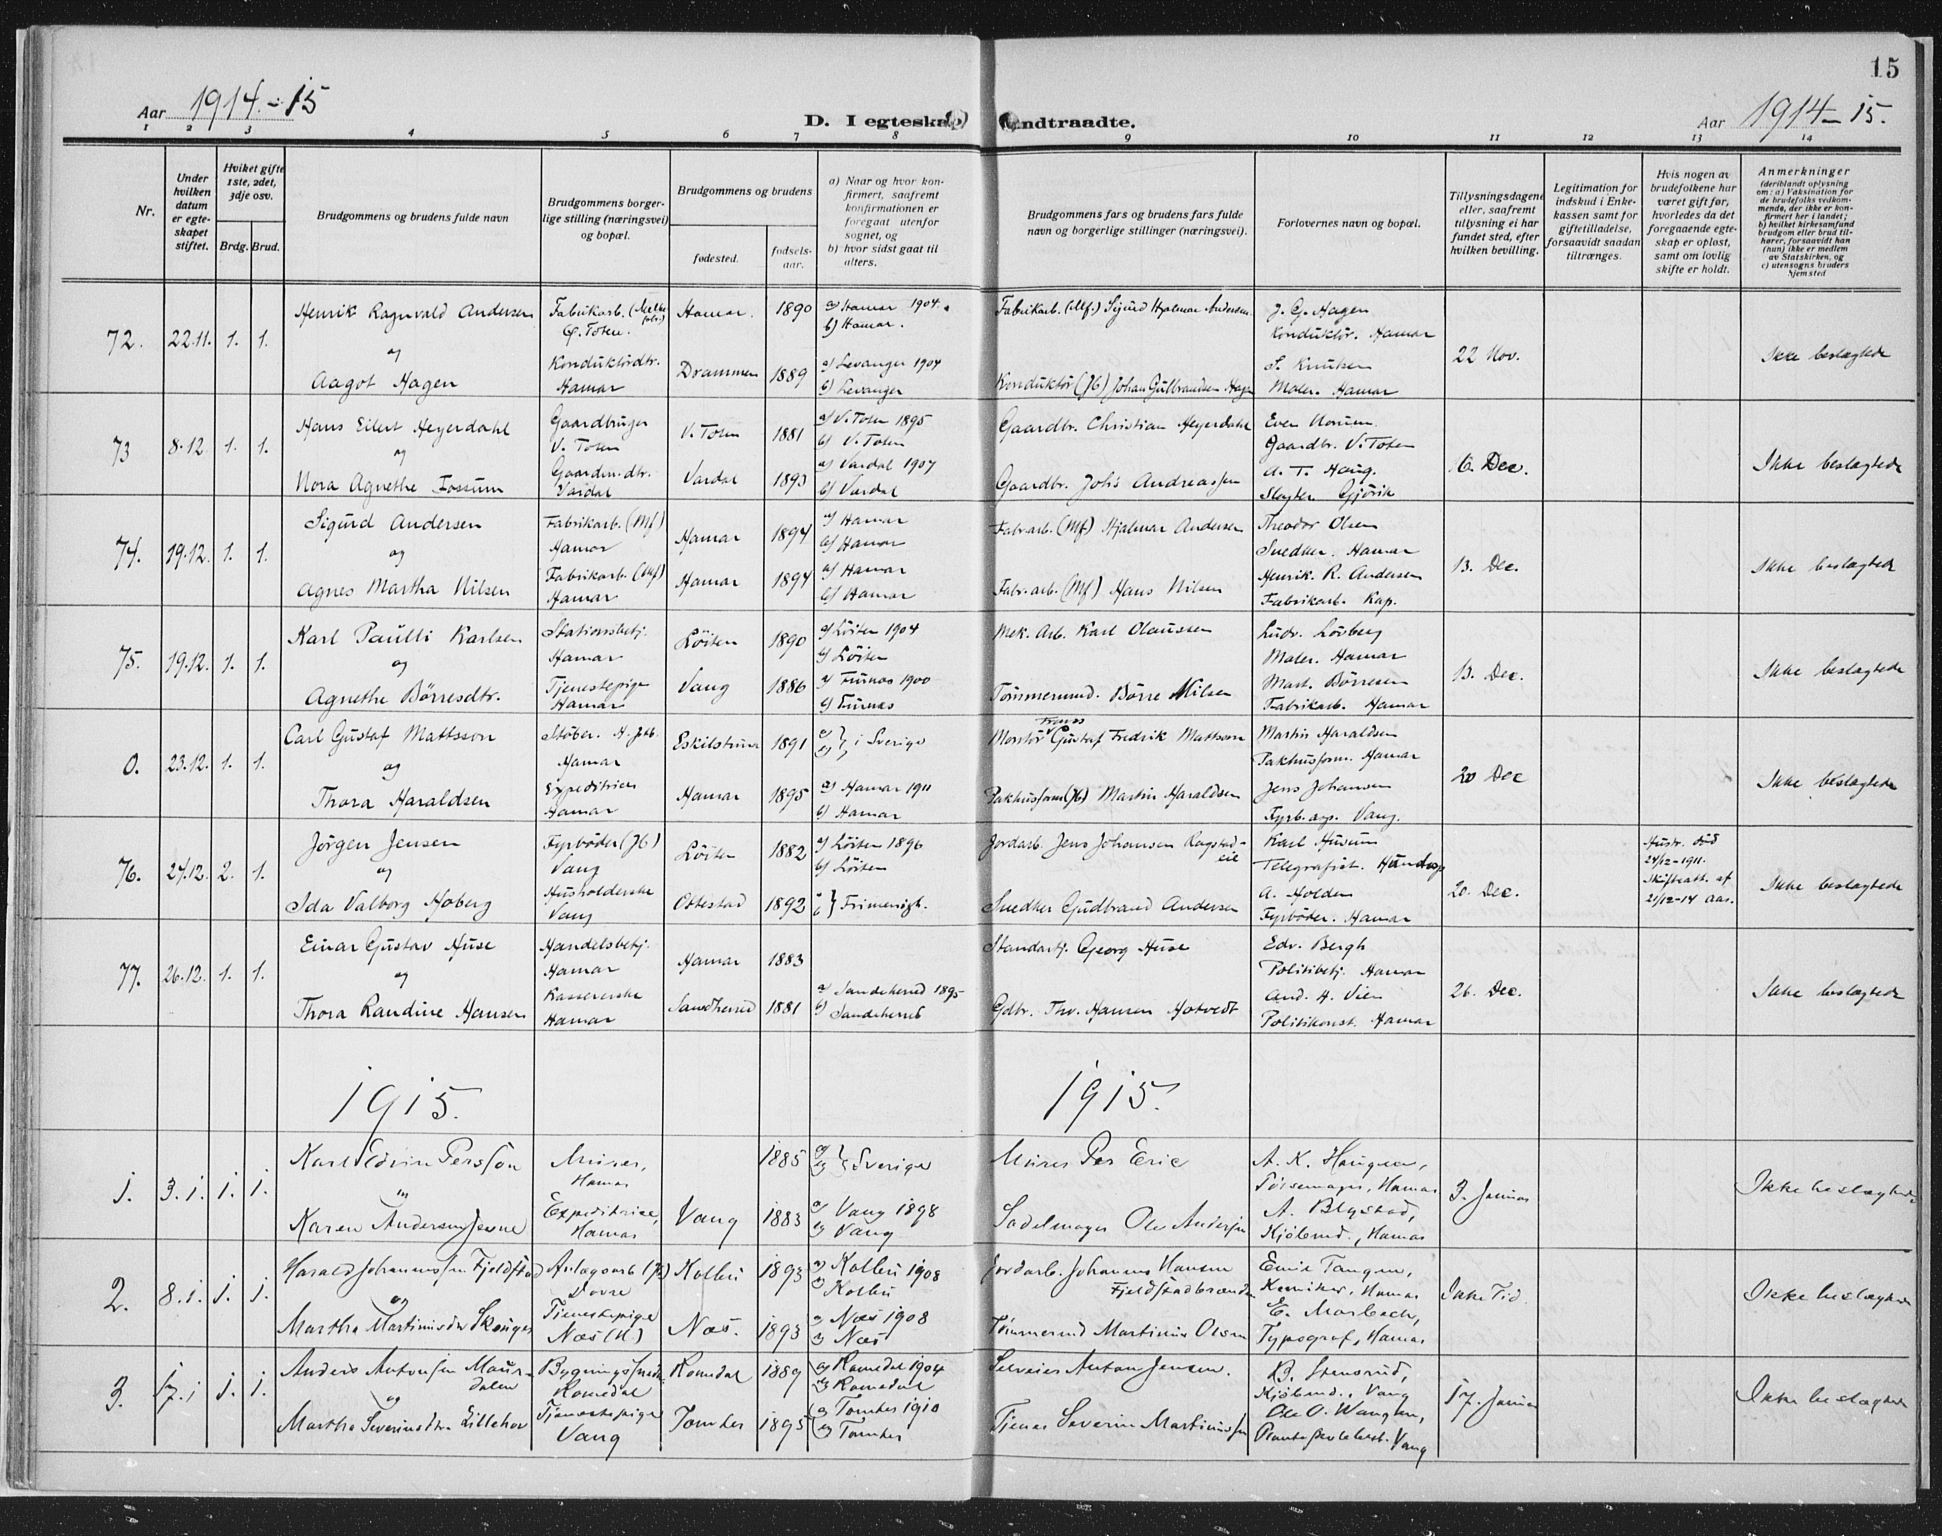 15
Aar 1914-15
D. I egteskap indtraadte.
Aar 1914-15.
1 2 3 4 5 6 7 8 9 10 11 12 13 14
Nr.
Under hvilken datum er egteskapet stiftet.
Hvilket gifte 1ste, 2det, 3dje osv.
Brdg. Brud.
Brudgommens og brudens fulde navn
Brudgommens borgerlige stilling (næringsvei) og bopæl.
Brudgommens og brudens
fødested.
fødselsaar.
a) Naar og hvor konfirmert, saafremt konfirmationen er foregaat utenfor sognet, og
b) hvor sidst gaat til alters.
Brudgommens fars og brudens fars fulde navn og borgerlige stillinger (næringsvei).
Forlovernes navn og bopæl.
Tillysningsdagene eller, saafremt tillysning ei har fundet sted, efter hvilken bevilling.
Legitimation for indskud i Enkekassen samt for giftetilladelse, forsaavidt saadan tiltrænges.
Hvis nogen av brudefolkene har været gift før, hvorledes da det foregaaende egteskap er opløst, samt om lovlig skifte er holdt.
Anmerkninger
(deriblandt oplysning om: a) Vaksination for de brudefolks vedkommende, der ikke er konfirmert her i landet; b) hvilket kirkesamfund brudgom eller brud tilhører, forsaavidt han (hun) ikke er medlem av Statskirken, og c) utensogns bruders hjemsted
72. 22.11. 1. 1. Henrik Ragnvald Andersen Fabrikarb. Ø. Toten. Hamar. 1890 a) Hamar 1904. b) Hamar. Fabrikarb. (Mf.) Sigurd Hjalmar Andersen J. G. Hagen Konduktør. Hamar 22 Nov. Ikke beslægtede
og
Aagot Hagen Konduktørdtr. Hamar Drammen 1889 a) Levanger 1904 b) Levanger Konduktør (Jb) Johan Gulbrandsen Hagen S. Knutsen Maler. Hamar
73 8.12 1. 1. Hans Eilert Heyerdahl Gaardbruger V. Toten V. Toten 1881 a) V. Toten 1895 b) V. Toten Gaardbr. Christian Heyerdahl Even Gaardbr. V. Toten 6. Dec. Ikke beslægtede
og
Nora Agnethe Fossum Gaardm.dtr. Vardal Vardal 1893 a) Vardal 1907 b) Vardal Gaardbr. Johs Andreassen A. T. Haug. Gjövik
74. 19.12. 1. 1. Sigurd Andersen Fabrikarb. (Mf) Hamar Hamar 1894 a) Hamar b) Hamar Fabr.arb. (Mf) Hjalmar Andersen Theodor Olsen Snedker. Hamar 13. Dec. Ikke beslægtede
og
Agnes Martha Nilsen Fabrikarb. (Mf) Hamar Hamar 1894 a) Hamar b) Hamar Fabr.arb. (Mf) Hans Nilsen Henrik. R. Andersen Fabrikarb. Kap.
75. 19.12. 1. 1. Karl Paulli Karlsen Stationsbetj. Hamar Löiten 1890 a) Löiten 1904 b) Löiten Mek. Arb. Karl Olaussen Ludv. Lövberg Maler. Hamar 13. Dec. Ikke beslægtede
og
Agnethe Börresdtr. Tjenestepige Hamar Vang 1886 a) Furnas 1900 b) Furnas Tömmermd. Börre Nilsen Mart. Börresen Fabrikarb. Hamar
0. 23.12. 1. 1. Carl Gustaf Mattsson Stöber. H. Jstb. Hamar Eskilstuna 1891 a) b) } i Sverige Montör Frans Gustaf Fredrik Mattsson Martin Haraldsen Pakhusform. Hamar 20 Dec Ikke beslægtede
og
Thora Haraldsen Expeditrice Hamar Hamar 1895 a) Hamar 1911 b) Hamar Pakhusform (Jb) Martin Haraldsen Jens Johansen Fyrb.asp. Vang.
76. 24.12. 2. 1. Jörgen Jensen Fyrböder (Jb) Vang Löiten 1882 a) Löiten 1896 b) Löiten Jordarb. Jens Johannsen Ragstadeie Karl Husum Telegrafist. 20. Dec. Hustr. död 24/12-1911. Skifteatt. af 21/12-14 Ikke beslægtede
og
Ida Valborg Hoberg Husholderske Vang Ottestad 1892 a b } Frimenigh. Snedker Gudbrand Andersen A. Holden Fyrböder. Hamar
77. 26.12. 1. 1. Einar Gustav Huse Handelsbetj. Hamar Hamar 1883 Georg Huse Edv. Bergh Politibetj. Hamar 26. Dec. Ikke beslægtede
og
Thora Randine Hansen Kassererske Hamar Sandherred 1881 a) Sandeherred 1895 b) Sandeherred Gdbr. Thv. Hansen Hotvedt And. H. Vien Politikonst. Hamar
1915. 1915.
1. 3.1. 1. 1. Karl Edvin Persson Murer, Hamar 1885 a) b) } Sverige Murer Per Eric A. K. Haugen, Börsemager, Hamar 3. Januar Ikke beslægtede
og
Karen Andersen Jevne Expeditrice, Hamar Vang 1883 a) Vang 1898 b) Vang Sadelmager Ole Andersen A. Blystad, Kjöbmd., Hamar
2. 8.1. 1. 1. Harald Johannessen Fjeldstad Anlagsarb (Jb) Dovre Kolbu 1893 a) Kolbu 1908 b) Kolbu Jordarb. Johannes Hansen Fjeldstadbrænden Emil Tangen, Kemiker, Hamar Ikke Tid Ikke beslægtede
og
Martha Martinusdtr Skaugen Tjenestepige Næs (H) Næs. 1893 a) Næs 1908 b) Næs Tömmermd Martinus Olsen E. Marbech, Typograf, Hamar
3. 17.1 1. 1. Anders Antonsen Maurdalen Bygningssnedk. Romedal Romedal 1889 a) Romedal 1904 b) Romedal Selveier Anton Jensen. B. Stensrud, Kjöbmd., Vang 17. Januar Ikke beslægtede
og
Martha Severinsdtr. Lillehov Tjenestepige Vang Tomter 1895 a) Tomter 1910 b) Tomter Tjener Severin Martinussen Ole O. Wangen, Vang